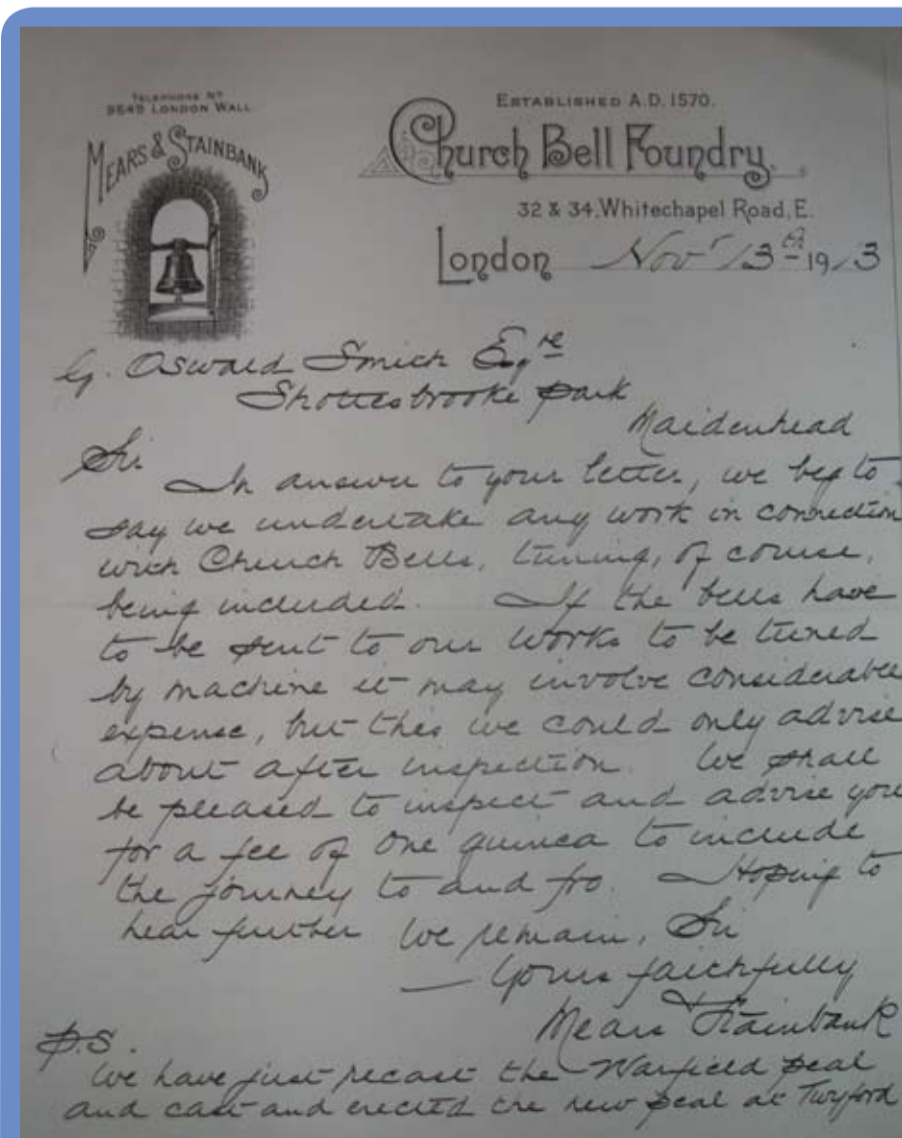 TELEPHONE Nº
9549 LONDON WALL
MEARS & STAINBANK
ESTABLISHED A.D. 1570.
Church Bell Foundry.
32 & 34, Whitechapel Road, E.
London Novr 13th 1913
G. Oswald Smith Esqre
Shottesbrooke Park
Maidenhead
Sir.
In answer to your letter, we beg to
say we undertake any work in connection
with Church Bells, tuning, of course,
being included. If the bells have
to be sent to our works to be tuned
by machine it may involve considerable
expense, but this we could only advise
about after inspection. We shall
be pleased to inspect and advise you
for a fee of One guinea to include
the journey to and fro. Hoping to
hear further We remain, Sir
Yours faithfully
Mears Stainbank
P.S.
We have just recast the Warfield peal
and cast and erected the new peal at Twyford